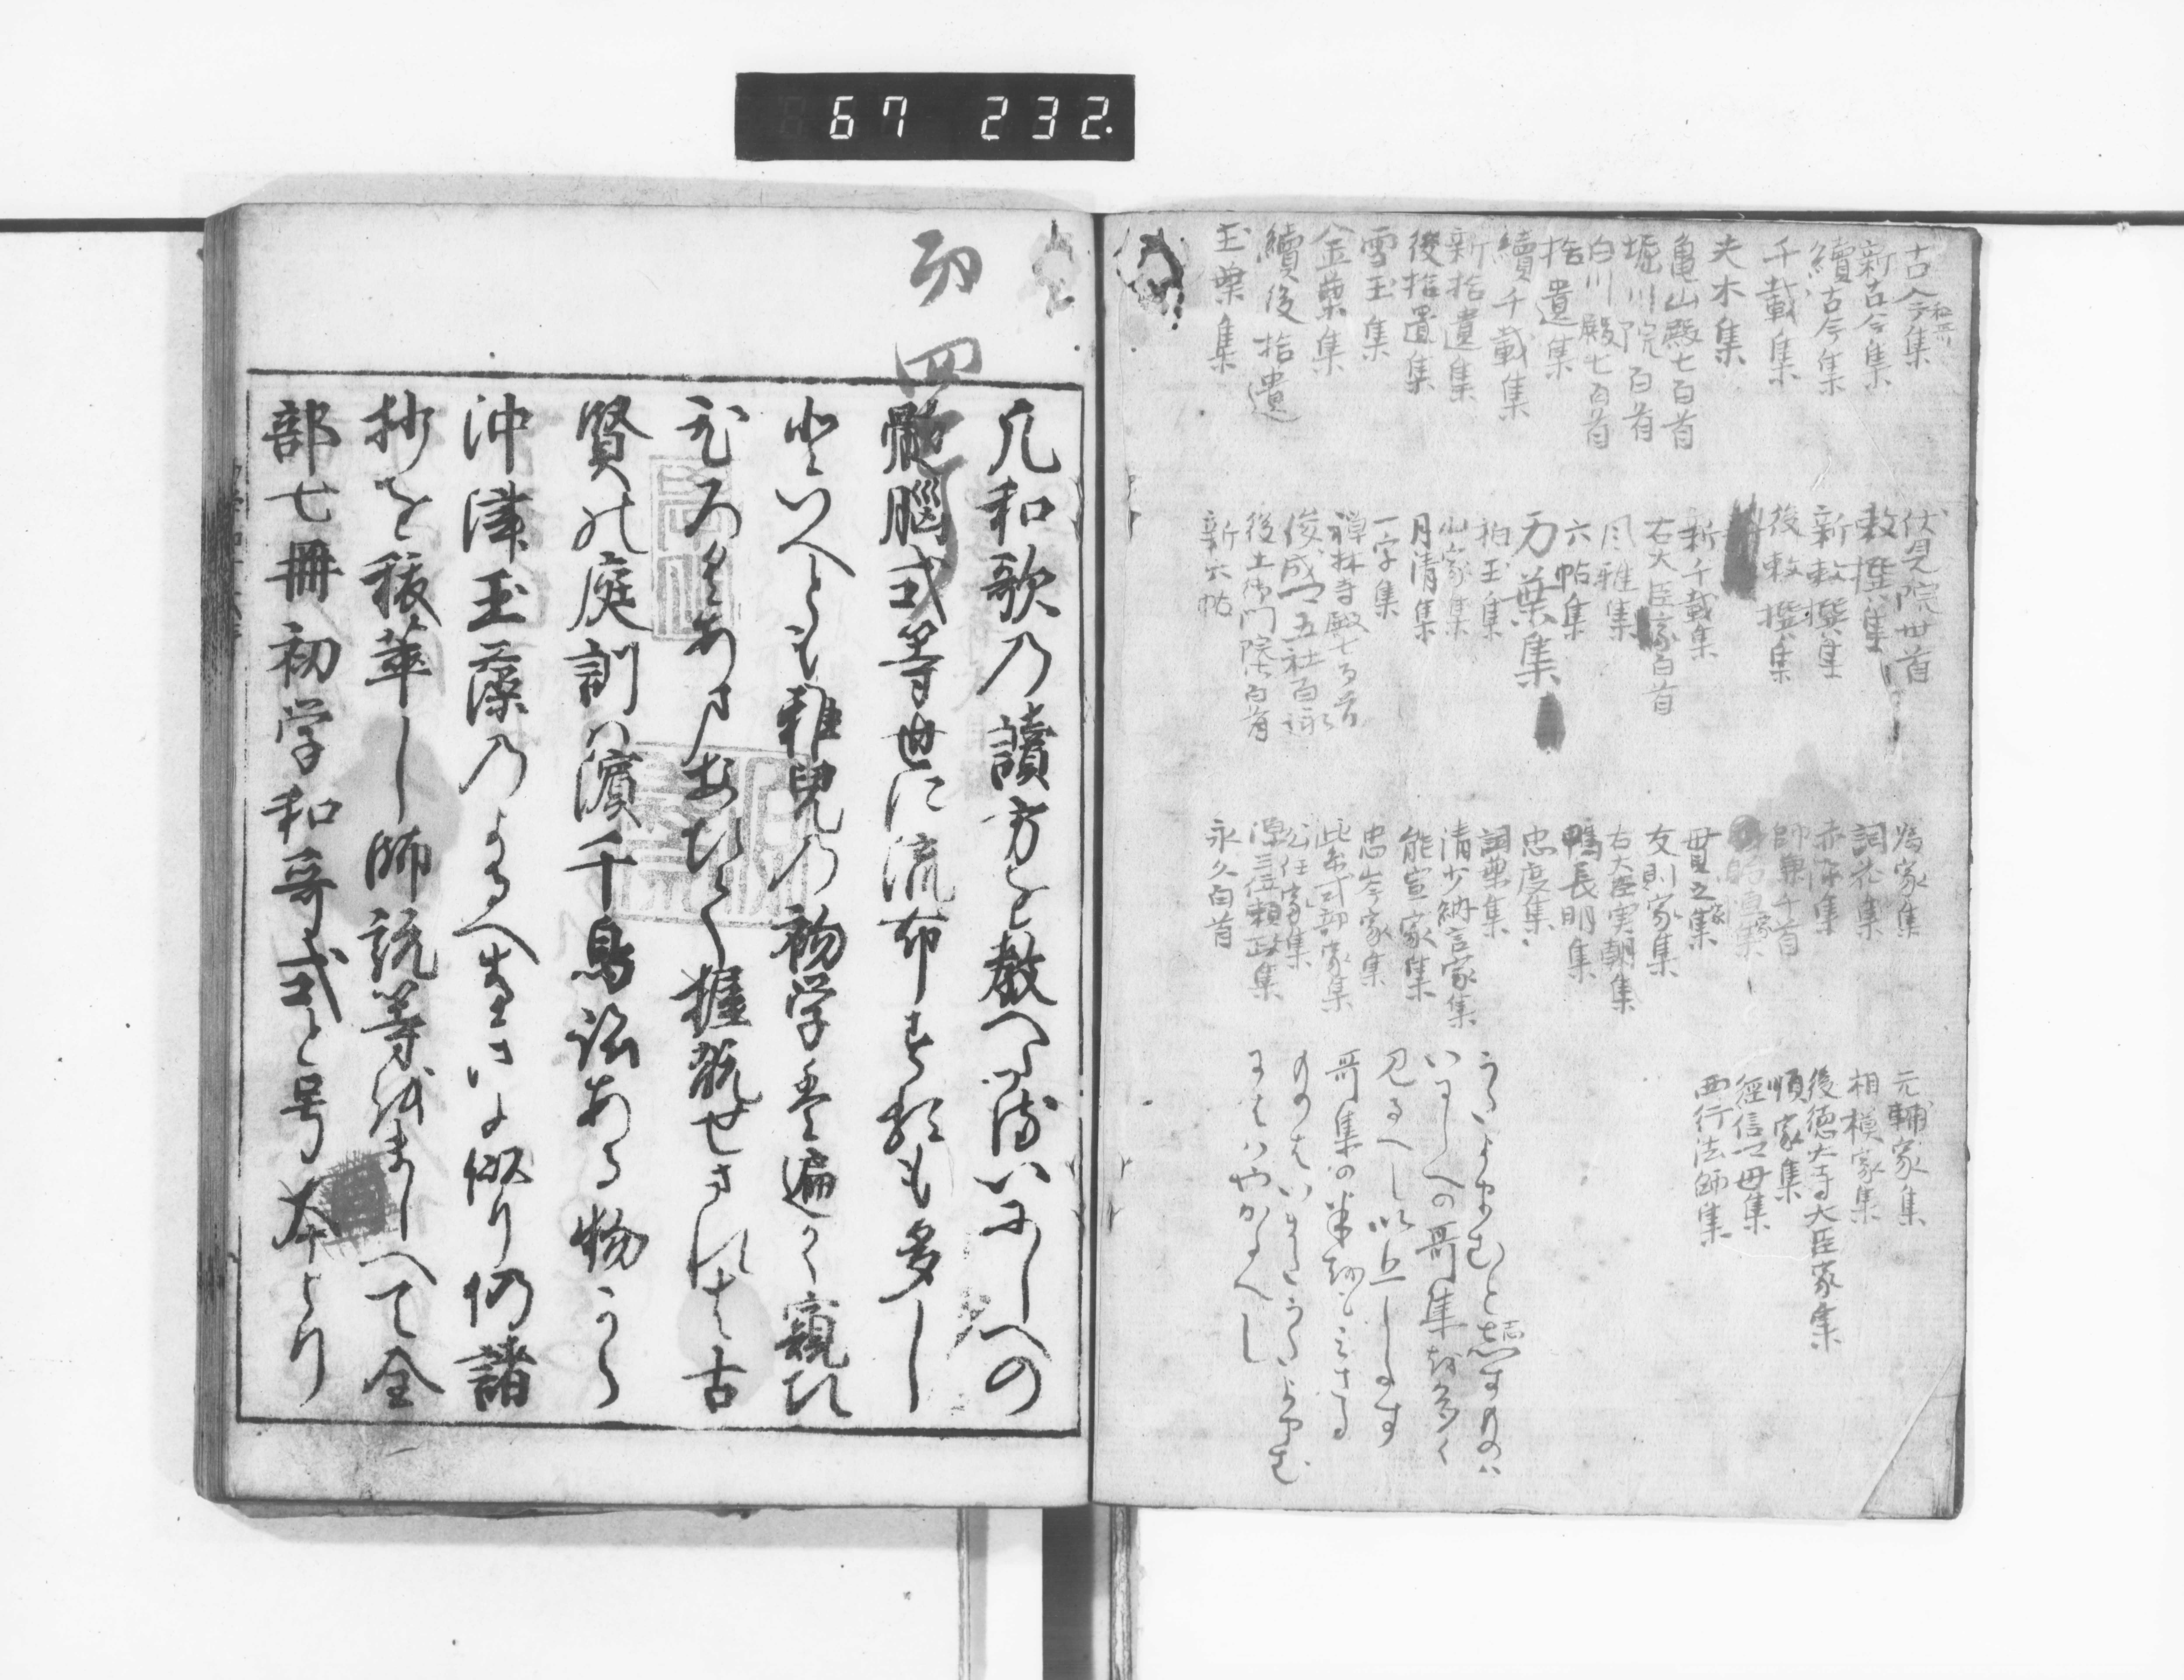 67 232.
古今集
和哥
新古今集
續古今集
千載集
夫木集
亀山殿七百首
堀川院百首
白川殿七百首
拾遺集
續千載集
新拾遺集
後拾遺集
雪玉集
金葉集
續後拾遺
玉葉集
伏見院卅首
敕撰集
新敕撰集
後敕撰集
新千載集
右大臣家百首
风雅集
六帖集
万葉集
柏玉集
山家集
月清集
一字集
禅林寺殿七百首
俊成卿五社百首
後土御門院百首
新六帖
為家集
詞花集
赤染集
師兼千首
貫之集
友則家集
右大臣実朝集
鴨長明集
忠度集
詞葉集
清少納言家集
能宣家集
忠岑家集
紫式部家集
公任家集
源三位頼政集
永久百首
元輔家集
相模家集
後徳大寺大臣家集
順家集
經信卿母集
西行法師集
うたよまむと志すものハ
いにしへの哥集を多く
見るへし以上しるす
哥集の半をもみさる
ものはいまたうたよむ
にはハやかるへし
四
凡和歌乃讀方を教へ給いにしへの
髄腦式等世に流布する類も多し
といへとも稚兒乃初学是を遍く窺ひ
賢の庭訓ハ濱千鳥跡ある物から
沖津玉藻乃よるへなきに似り仍諸
抄を拔萃し師説等をましへて全
部七冊初学和哥式と号本より